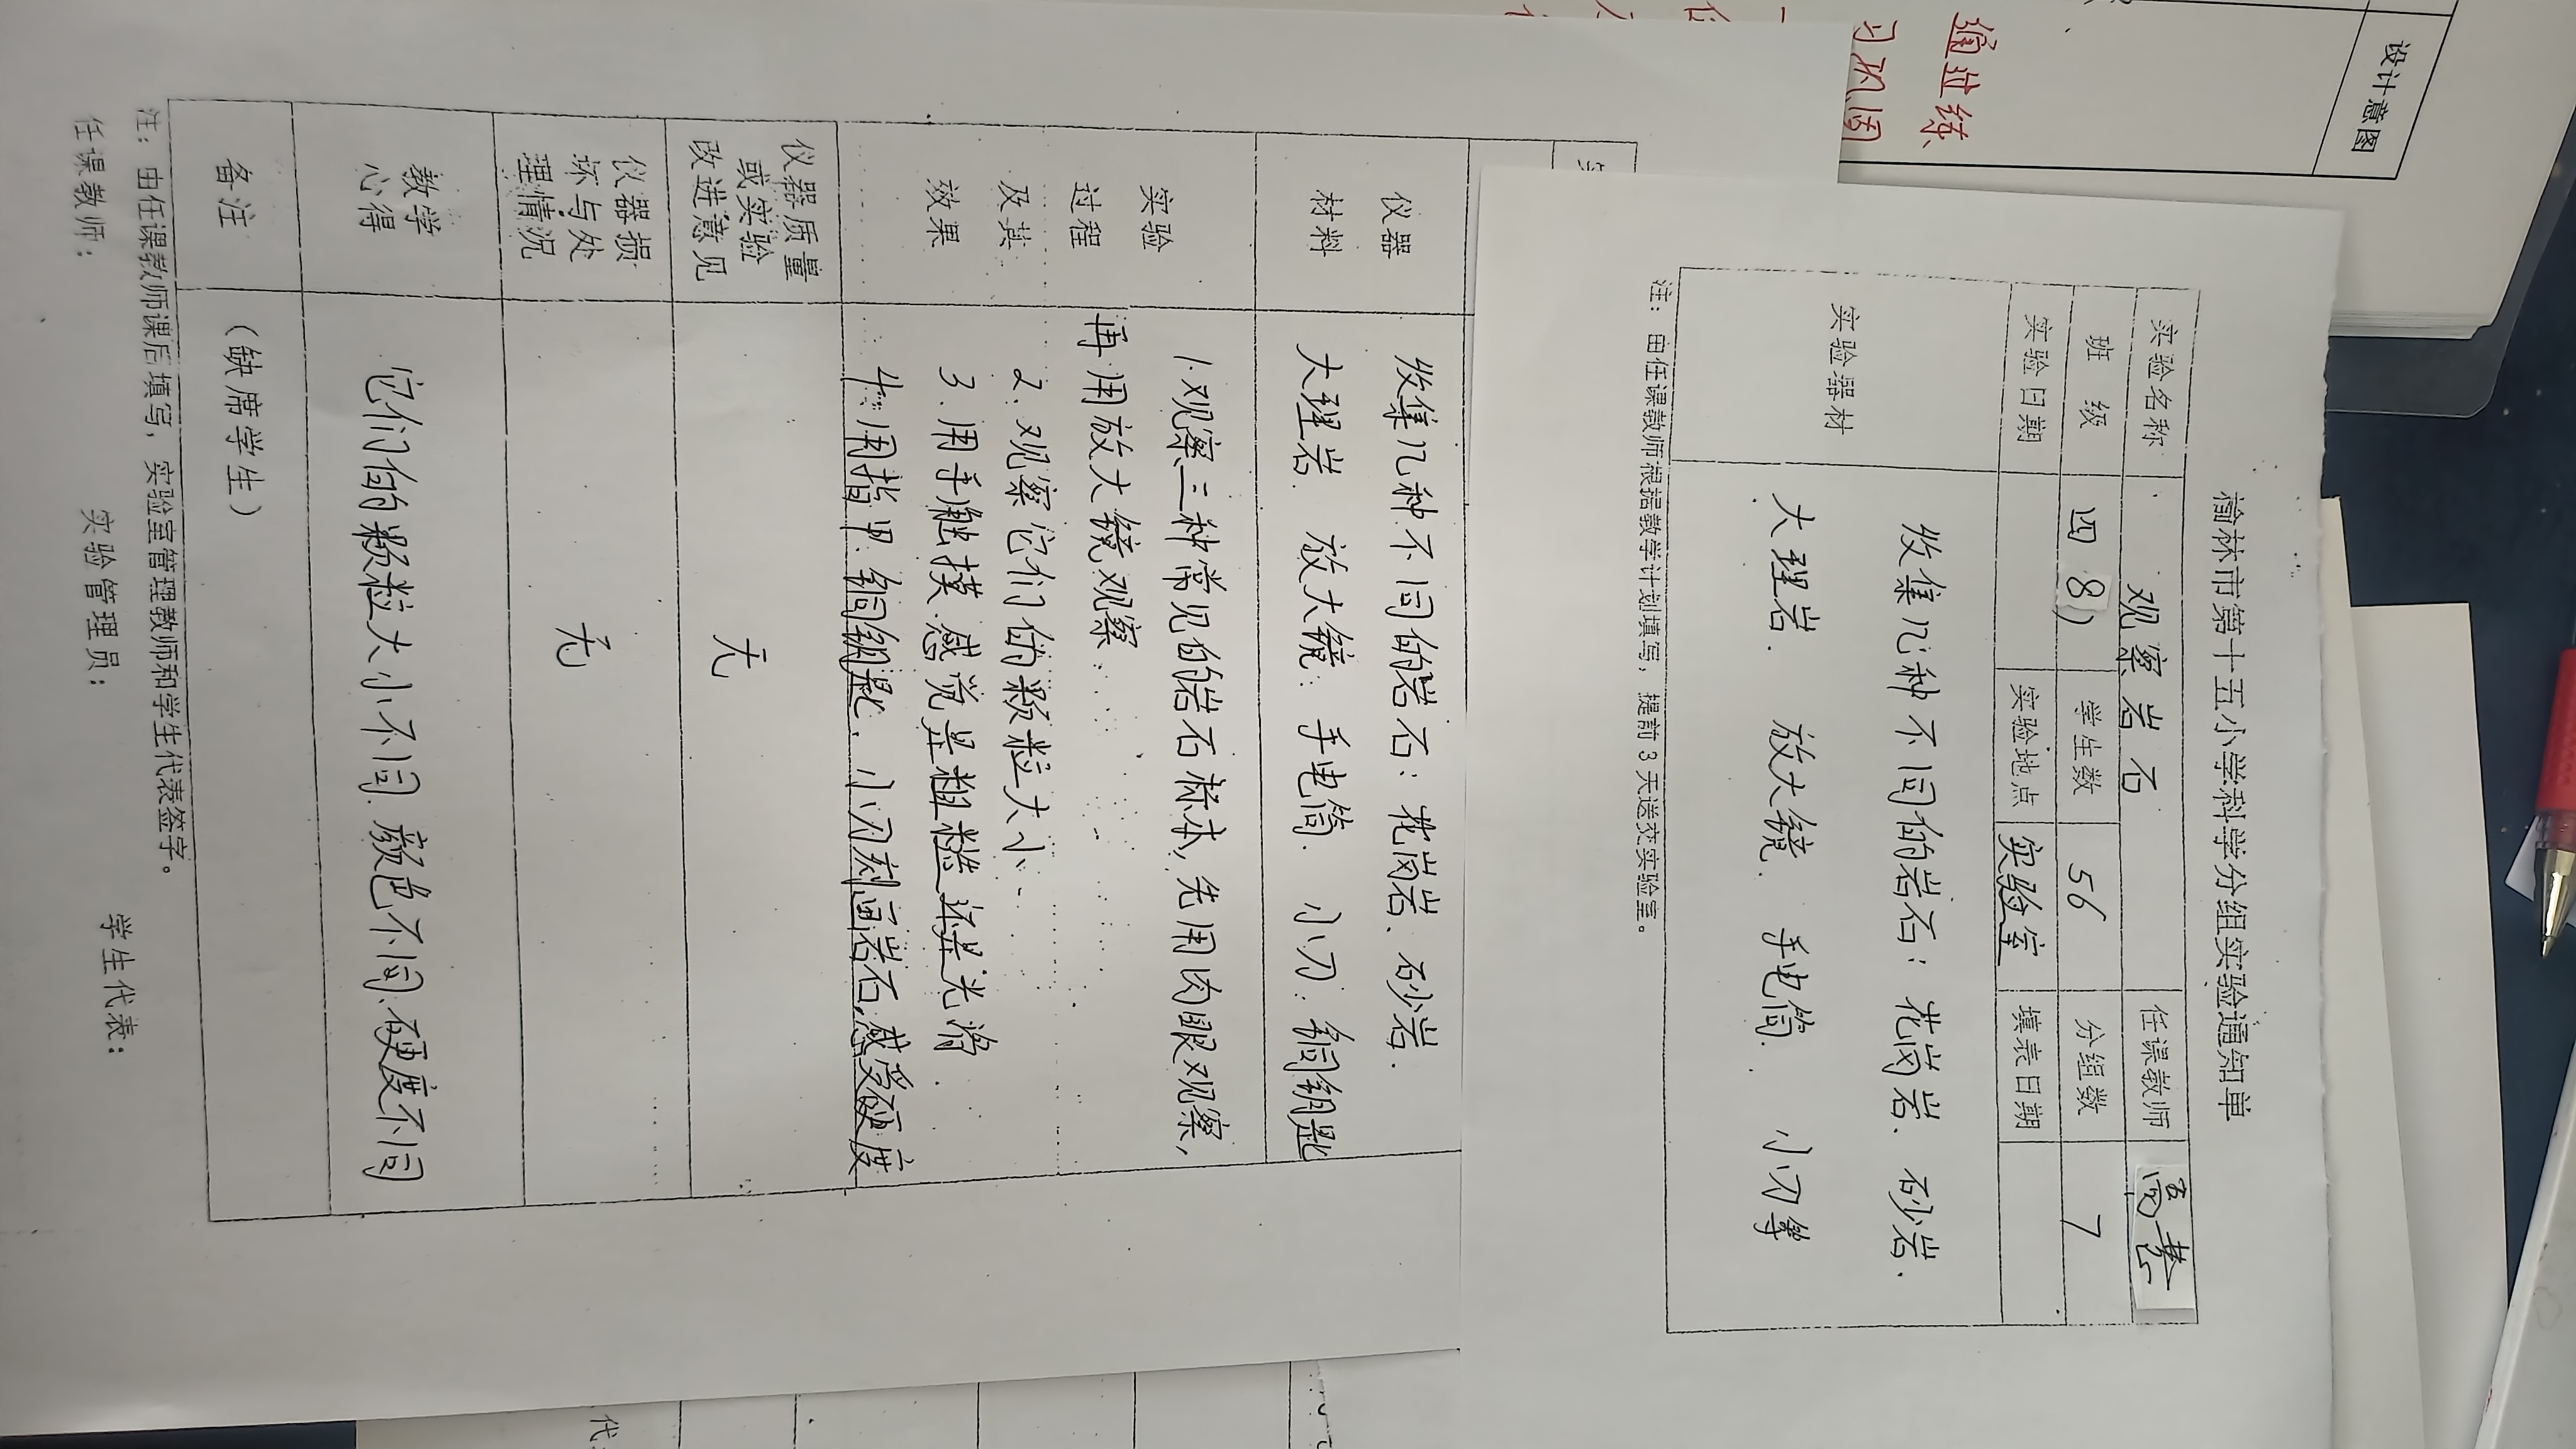 榆林市第十五小学科学分组实验通知单
实验名称 观察岩石 任课教师
班 级 四8) 学生数 56 分组数 7
实验日期 实验地点 实验室 填表日期
实验器材
收集几种不同的岩石：花岗岩、砂岩.
大理岩. 放大镜. 手电筒. 小刀等
注：由任课教师根据教学计划填写，提前3天送交实验室。
仪器
材料
收集几种不同的岩石：花岗岩、砂岩.
大理岩. 放大镜. 手电筒. 小刀. 铜钥匙
实验
过程
及其
效果
1.观察三种常见的岩石标本，先用肉眼观察，
再用放大镜观察.
2.观察它们的颗粒大小.
3.用手触摸.感觉是粗糙还是光滑.
4.用指甲.铜钥匙.小刀刻画岩石,感受硬度
仪器质量
或实验
改进意见
无
仪器损
坏与处
理情况
无
教学
心得
它们的颗粒大小不同.颜色不同.硬度不同
备注 （缺席学生）
注：由任课教师课后填写，实验室管理教师和学生代表签字。
任课教师： 实验管理员： 学生代表：
设计意图
通过练